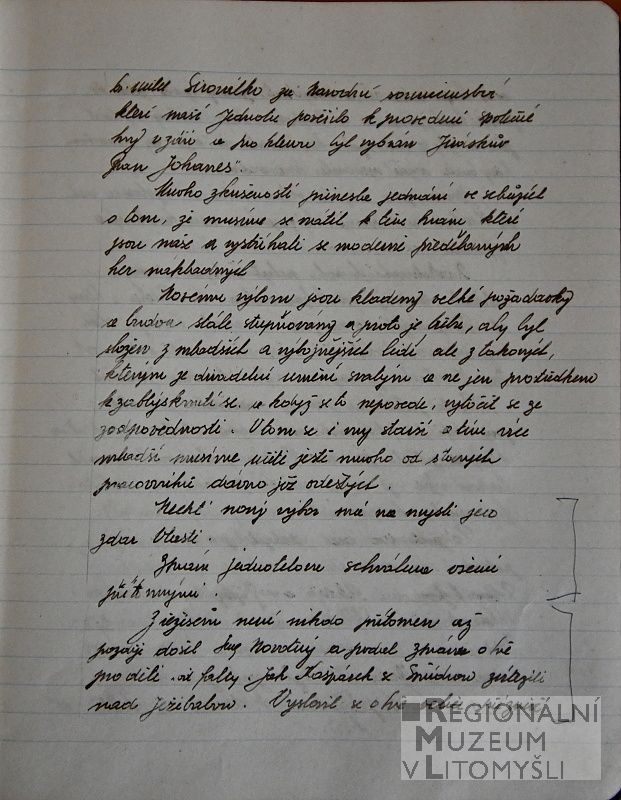 b. ředitel Sirovátko za Národní
které naší Jednotu pověřilo k provedení společné
hry v září a pro kterou byl vybrán Jiráskův
"Pan Johanes".
Mnoho zkušeností přineslo jednání ve
o tom, že musíme se vrátit k těm hrám které
jsou naše a vystříhati se moderně předělaných
her nákladných
Novému výboru jsou kladeny velké požadavky
a budou stále stupňovány a proto je třeba, aby byl
složen z mladších a výbojnějších lidí ale z takových,
kterým je divadelní umění svatým a ne jen prostředkem
k zablýsknutí se a když se to nepovede, vytočit se ze
zodpovědnosti. V tom se i my starší a tím více
mladší musíme učit ještě mnoho od starých
pracovníků dávno již odešlých.
Nechť nový výbor má na mysli jen
zdar Vlasti.
Zpráva jednatelova schválena všemi
přítomnými.
Z režisérů není nikdo přítomen až
později došel Novotný a podal zprávu o hře
pro děti. Jak Kašpárek se zvítězili
nad Ježibabou. Vyslovil se o hře velmi
REGIONÁLNÍ
MUZEUM
V LITOMYŠLI